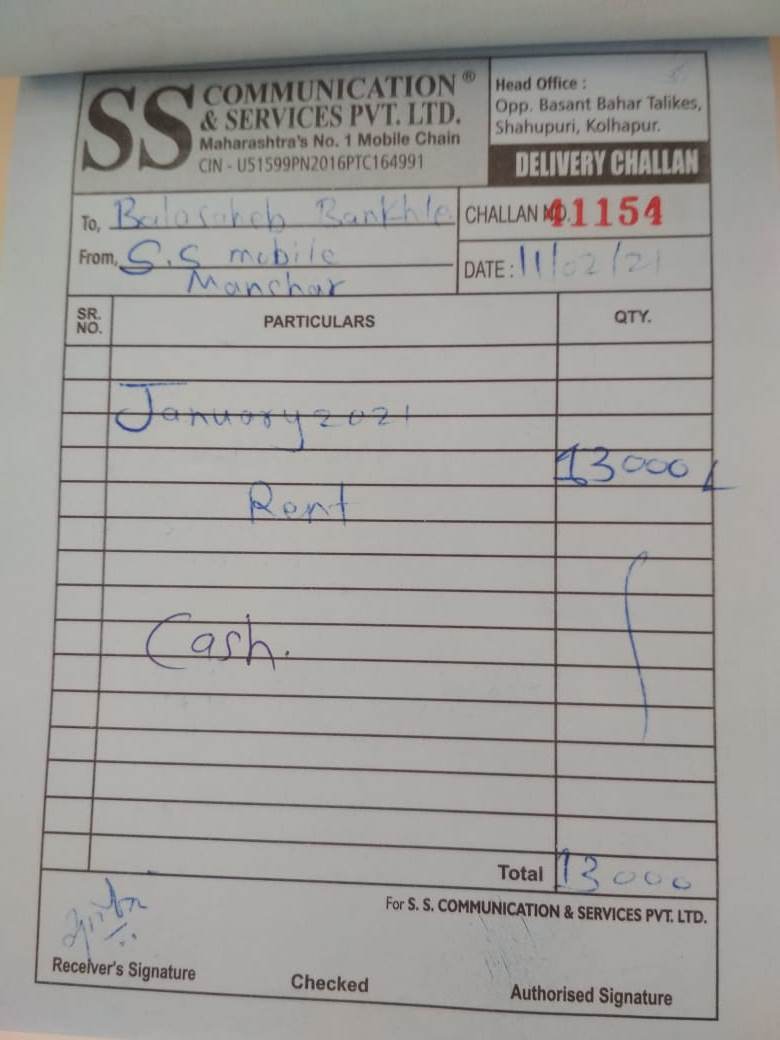 SS COMMUNICATION ®
& SERVICES PVT. LTD.
Maharashtra's No. 1 Mobile Chain
CIN - U51599PN2016PTC164991
Head Office :
Opp. Basant Bahar Talikes,
Shahupuri, Kolhapur.
DELIVERY CHALLAN
To, Balasaheb Bankhle
From, S.S mobile
Manchar
CHALLAN NO. 41154
DATE : 11/02/21
SR. NO. PARTICULARS QTY.
January 2021
13000
Rent
Cash.
Total 13000
For S. S. COMMUNICATION & SERVICES PVT. LTD.
Receiver's Signature Checked Authorised Signature